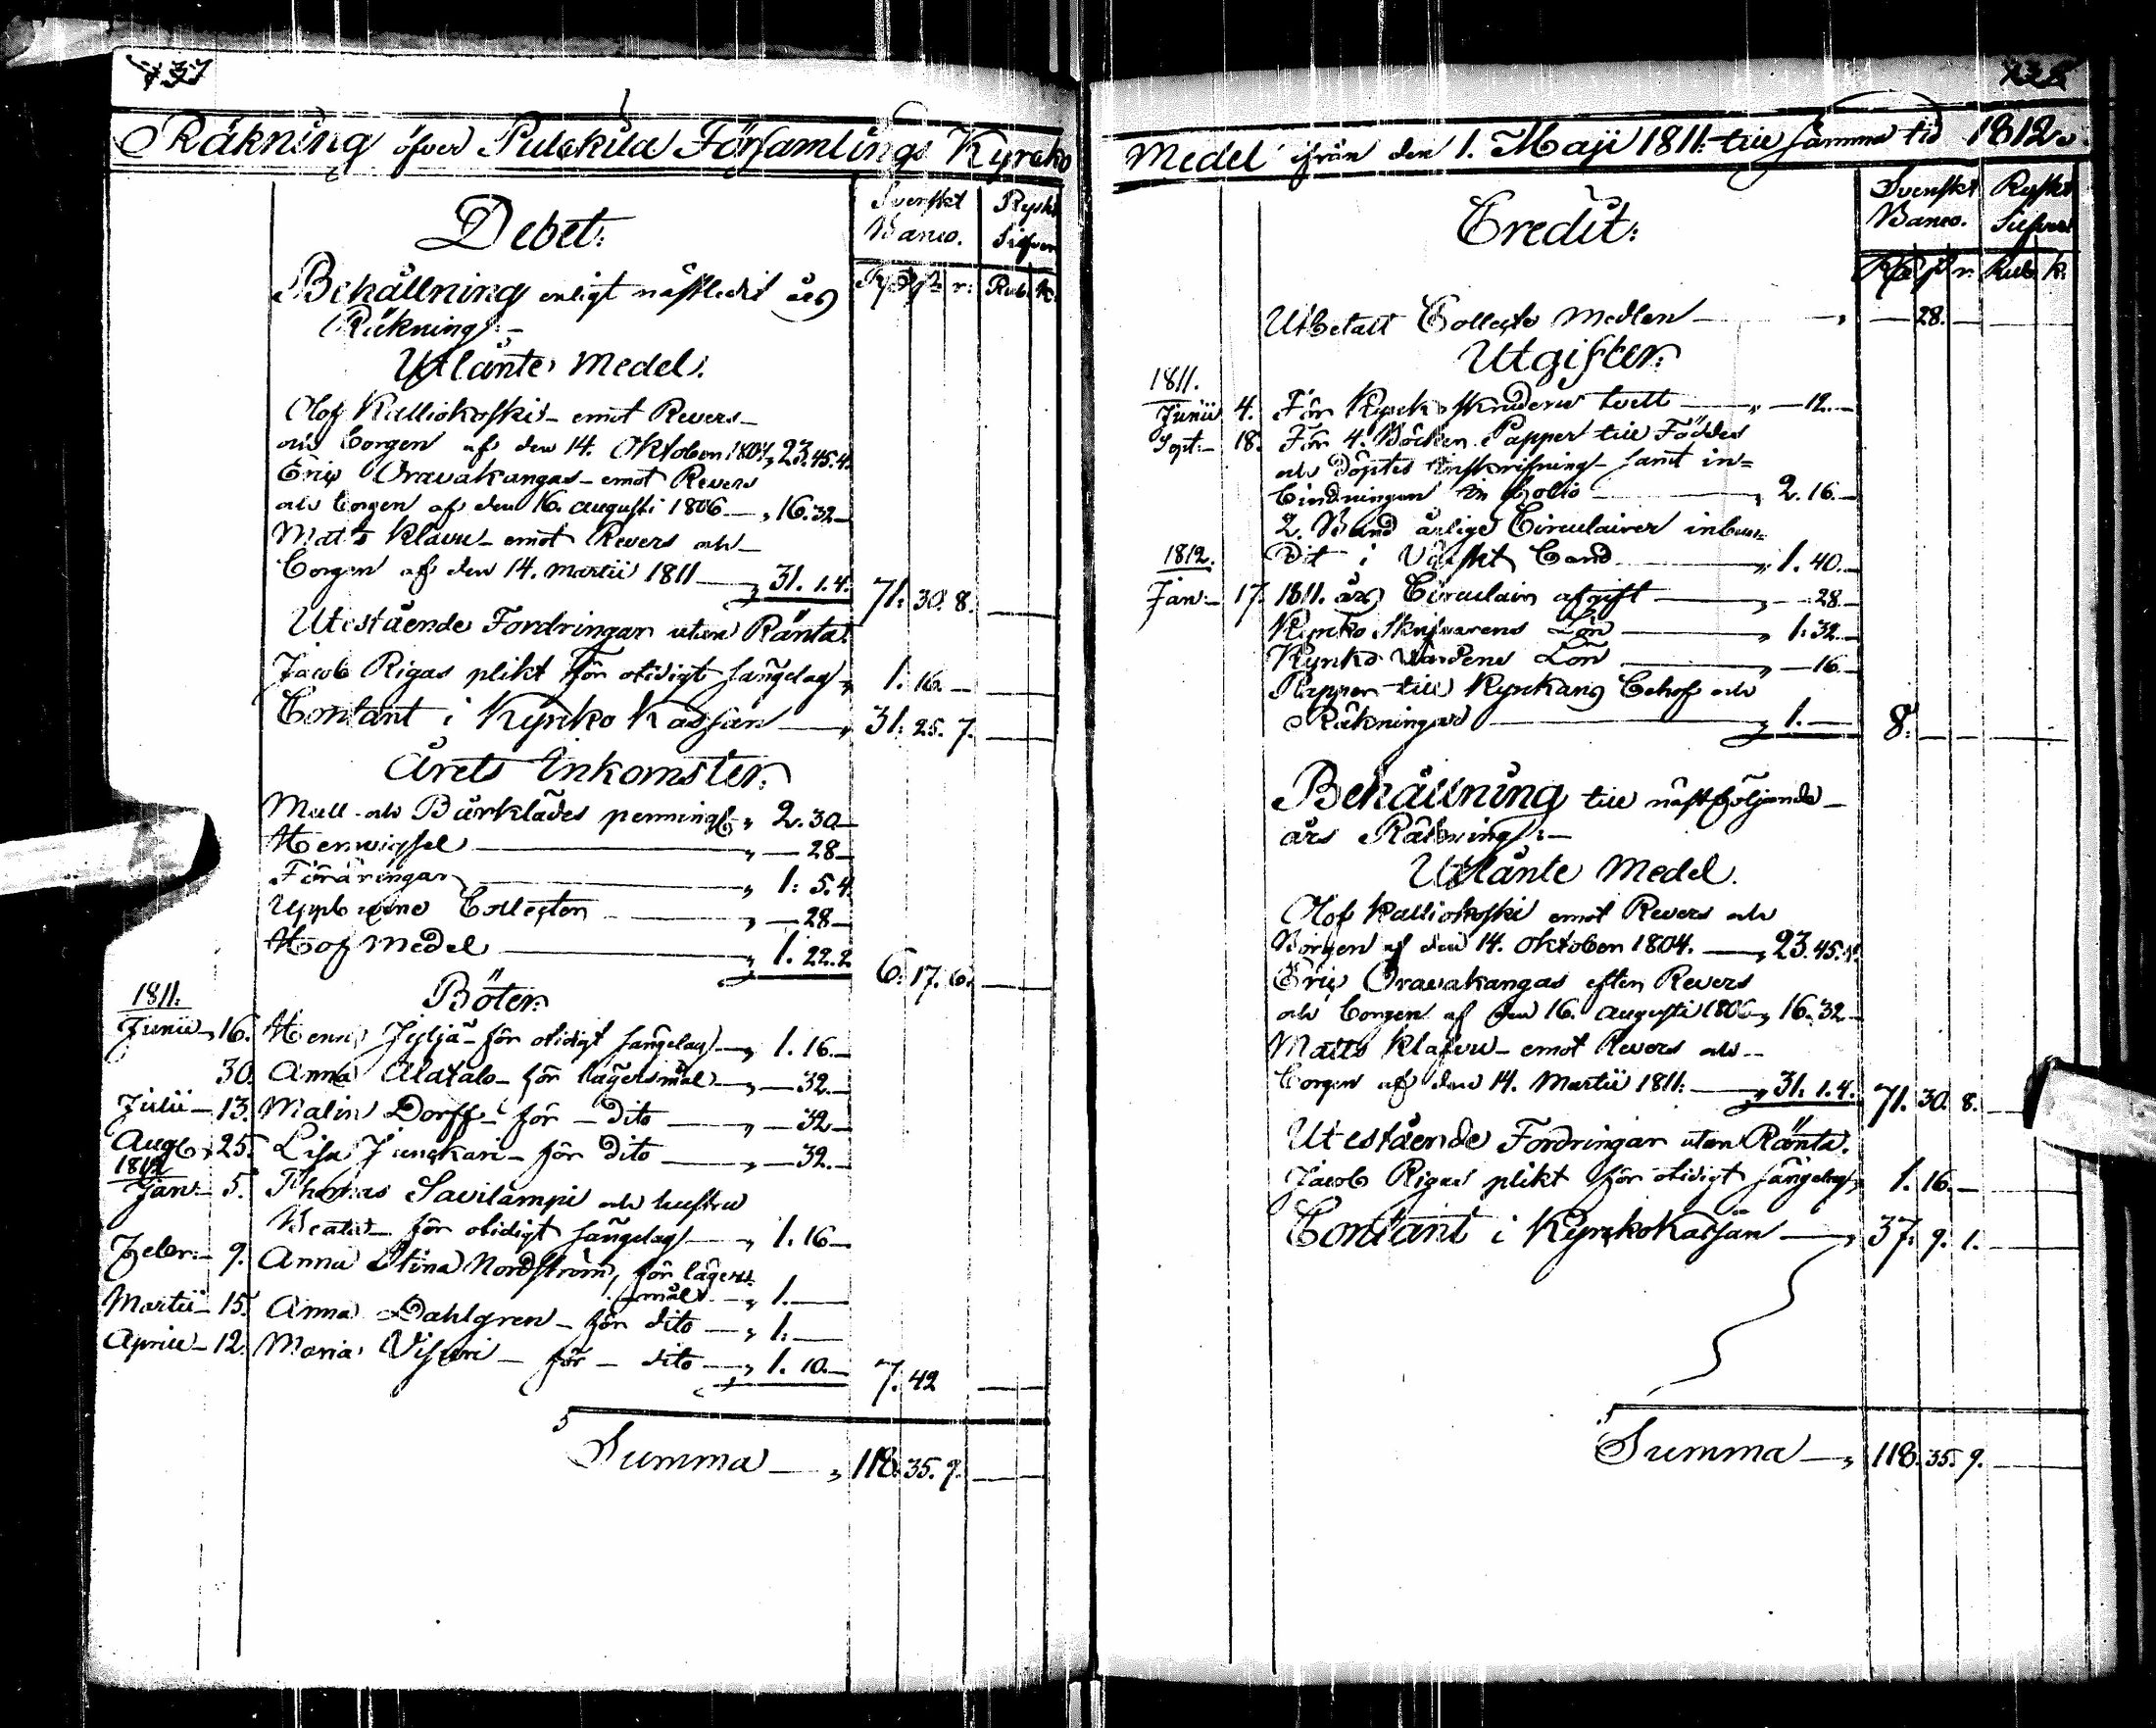 737
Räkning öfver Pulckila Församlings Kyrcko
Debet:
Svenskt Banco.
Ryskt Silfver
Rd sk. r.
Rub. k.
Behållning enligt nästledit års
Räkning:-
Utlånte Medel.
Olof Kalliokoski - emot Revers -
och Borgen af den 14. Oktober 1804, 23. 45. 4.
Eric Oravakangas - emot Revers
och borgen af den 16. augusti 1806 - " 16. 32 -
Matts Klavu - emot Revers och -
Borgen af den 14. Martii 1811 - " 31. 1. 4. 71. 30. 8.
Utestående Fordringar utan Ränta.
Jacob Rigas plikt för otidigt sängelag " 1. 16. -
Contant i Kyrcko Kassan - " 31. 25. 7.
Årets Inkomster.
Mull och Bårklädes penningr " 2. 30 -
- 28 -
Föräringar " 1: 5. 4.
Collecten " - 28 -
Håf Medel " 1. 22. 2 6. 17. 6.
Böter.
1811.
Junii - 16. för otidigt sängelag - " 1. 16 -
30. Anna Alatalo - för lägersmål - " - 32 -
Julii - 13. Malin Dorff - för - dito - " - 32 -
Aug. - 25. Lisa Junckari - för dito - " - 32 -
1812
Jan: - 5. Thomas Savilampi och hustru
Beata - för otidigt sängelag - " 1. 16 -
Febr: - 9. Anna Stina Nordström, för lägers-
mål - " 1. -
Martii - 15. Anna Dahlgren - för dito - " 1: -
Aprill - 12. Maria Visuri - för - dito - " 1. 10. - 7. 42
Summa - " 118. 35. 9.
738
Medel ifrån den 1. Maji 1811: till samma tid 1812.
Credit:
Svenskt Banco.
Ryskt Silfver
Rd sk r.
Rub. k.
Utbetalt Collecte Medlen - " - 28. -
Utgifter:
1811.
Junii 4. För Kyrck skruders tvätt - " - 12. -
Sept: - 18. För 4. Böcker Papper till Föddes
och Döptes Inskrifning - samt in=
bindningen in Folio - " 2. 16. -
2. Band årlige Circulairer inbun=
1812. Dit i Band " 1. 40. -
Jan: - 17. 1811. års Circulair afgift - " - 28 -
Kyrcko Skrifvarens Lön - " 1: 32. -
Kyrko Lön - " - 16 -
Papper till Kyrckans behof och
Räkningar " 1. - 8: -
Behållning till nästföljande -
års Räkning:-
Utlånte Medel.
Olof Kalliokoski emot Revers och
Borgen af den 14. Oktober 1804. - " 23. 45. 4.
Eric Oravakangas efter Revers
och borgen af den 16. augusti 1806 " 16. 32 -
Matts Klavu - emot Revers och -
borgen af den 14. Martii 1811. - " 31: 1. 4. 71. 30. 8.
Utestående Fordringar utan Ränta.
Jacob Rigas plikt för otidigt sängelag " 1. 16. -
Contant i Kyrcko Kassan - " 37. 9. 1.
Summa - " 118. 35. 9.